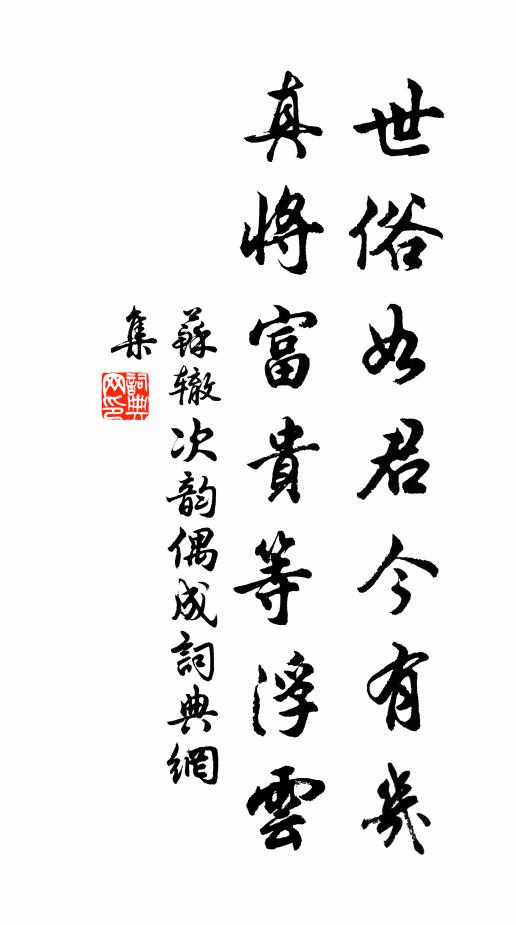 世俗如君今有幾
真將富貴等浮雲
蘇辙次韵偶成詞典網
集
詞典网印